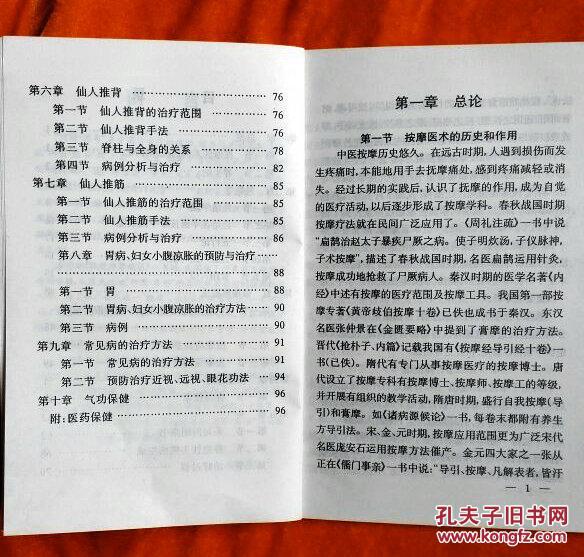 第六章 仙人推背 …………………… 76
第一节 仙人推背的治疗范围 …………… 76
第二节 仙人推背手法 …………………… 76
第三节 脊柱与全身的关系 ……………… 78
第四节 病例分析与治疗 ………………… 82
第七章 仙人推筋 …………………… 85
第一节 仙人推筋的治疗范围 …………… 85
第二节 仙人推筋手法 …………………… 85
第三节 病例分析与治疗 ………………… 86
第八章 胃病、妇女小腹凉胀的预防与治疗 ……
…………………………………… 88
第一节 胃 …………………………… 88
第二节 胃病、妇女小腹凉胀的治疗方法 …… 90
第三节 病例 …………………………… 90
第九章 常见病的治疗方法 …………… 91
第一节 常见病的治疗方法 ……………… 91
第二节 预防治疗近视、远视、眼花功法 …… 94
第十章 气功保健 …………………… 96
附:医药保健 …………………………… 96
第一章 总论
第一节 按摩医术的历史和作用
中医按摩历史悠久。在远古时期,人遇到损伤而发
生疼痛时,本能地用手去抚摩痛处,感到疼痛减轻或消
失。经过长期的实践后,认识了抚摩的作用,成为自觉
的医疗活动,以后逐步形成了按摩学科。春秋战国时期
按摩疗法就在民间广泛应用了。《周礼注疏》一书中说
“扁鹊治赵太子暴疾尸厥之病。使子明炊汤,子仪脉神,
子术按摩”,描述了春秋战国时期,名医扁鹊运用针灸、
按摩成功地抢救了尸厥病人。秦汉时期的医学名著《内
经》中述有按摩的医疗范围及按摩工具。我国第一部按
摩专著《黄帝歧伯按摩十卷》已佚也成书于秦汉。东汉
名医张仲景在《金匮要略》中提到了膏摩的治疗方法。
晋代《抢朴子、内篇》记载我国有《按摩经导引经十卷》一
书(已佚)。隋代有专门从事按摩医疗的按摩博士。唐
代设立了按摩专科有按摩博士、按摩师、按摩工的等级,
并开展有组织的教学活动,隋唐时期,盛行自我按摩(导
引)和膏摩。如《诸病源候论》一书,每卷末都附有养生
方导引法。宋、金、元时期,按摩应用范围更为广泛宋代
名医庞安石运用按摩方法催产。金元四大家之一张从
正在《儒门事亲》一书中说:“导引、按摩、凡解表者,皆汗
— 1 —
孔夫子旧书网